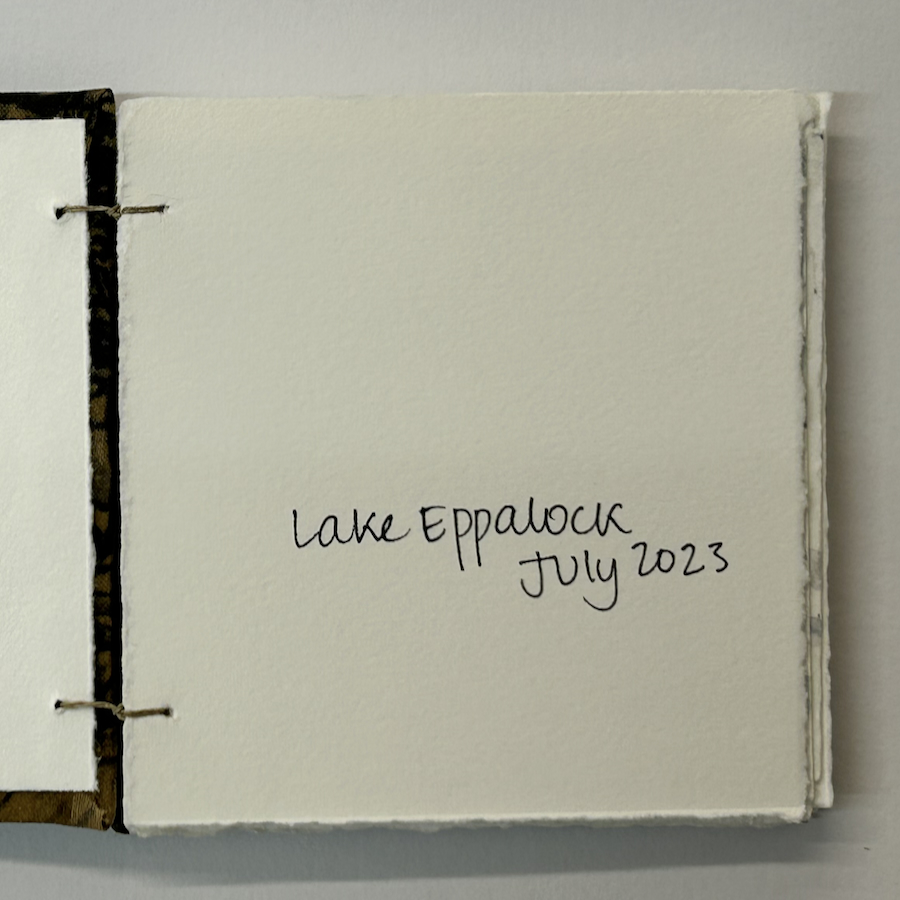 Lake Eppalock
July 2023